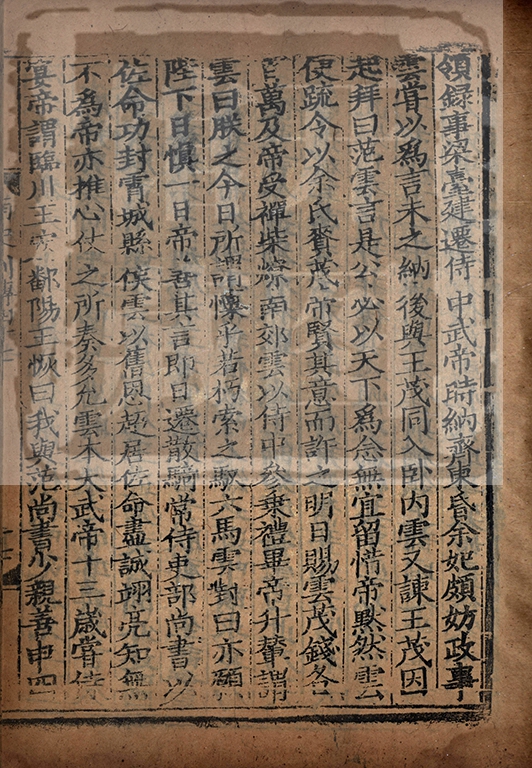 領録事梁臺建遷侍中武帝時納齊東昏余妃頗妨政事
雲甞以爲言未之納後與王茂同入卧内雲又諫王茂因
起拜曰范雲言是公必以天下爲念無宜留惜帝黙然雲
便疏令以余氏賚茂帝賢其意而許之明日賜雲茂錢各
百萬及帝受禪柴燎南郊雲以侍中參乗禮畢帝升輦謂
雲曰朕之今日所謂懍乎若朽索之馭六馬雲對曰亦願
陛下日慎一日帝善其言即日遷散騎常侍吏部尚書以
佐命功封霄城縣侯雲以舊恩超居佐命盡誠翊亮知無
不爲帝亦推心仗之所奏多允雲本大武帝十三歳甞侍
宴帝謂臨川王宏鄱陽王恢曰我與范尚書少親善申四